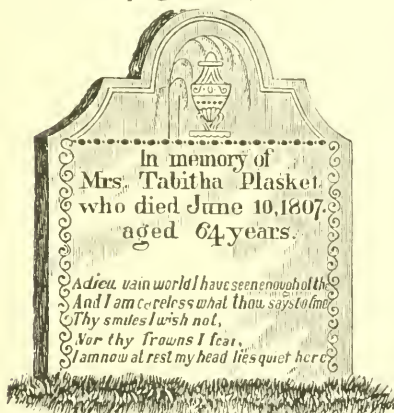 In memory of
Mrs. Tabitha Plasket
who died June 10, 1807.
aged 64 years.
Adieu vain world I have seen enough of the
And I am careless what thou says to me
Thy smiles I wish not,
Nor thy frowns I fear,
I am now at rest my head lies quiet here